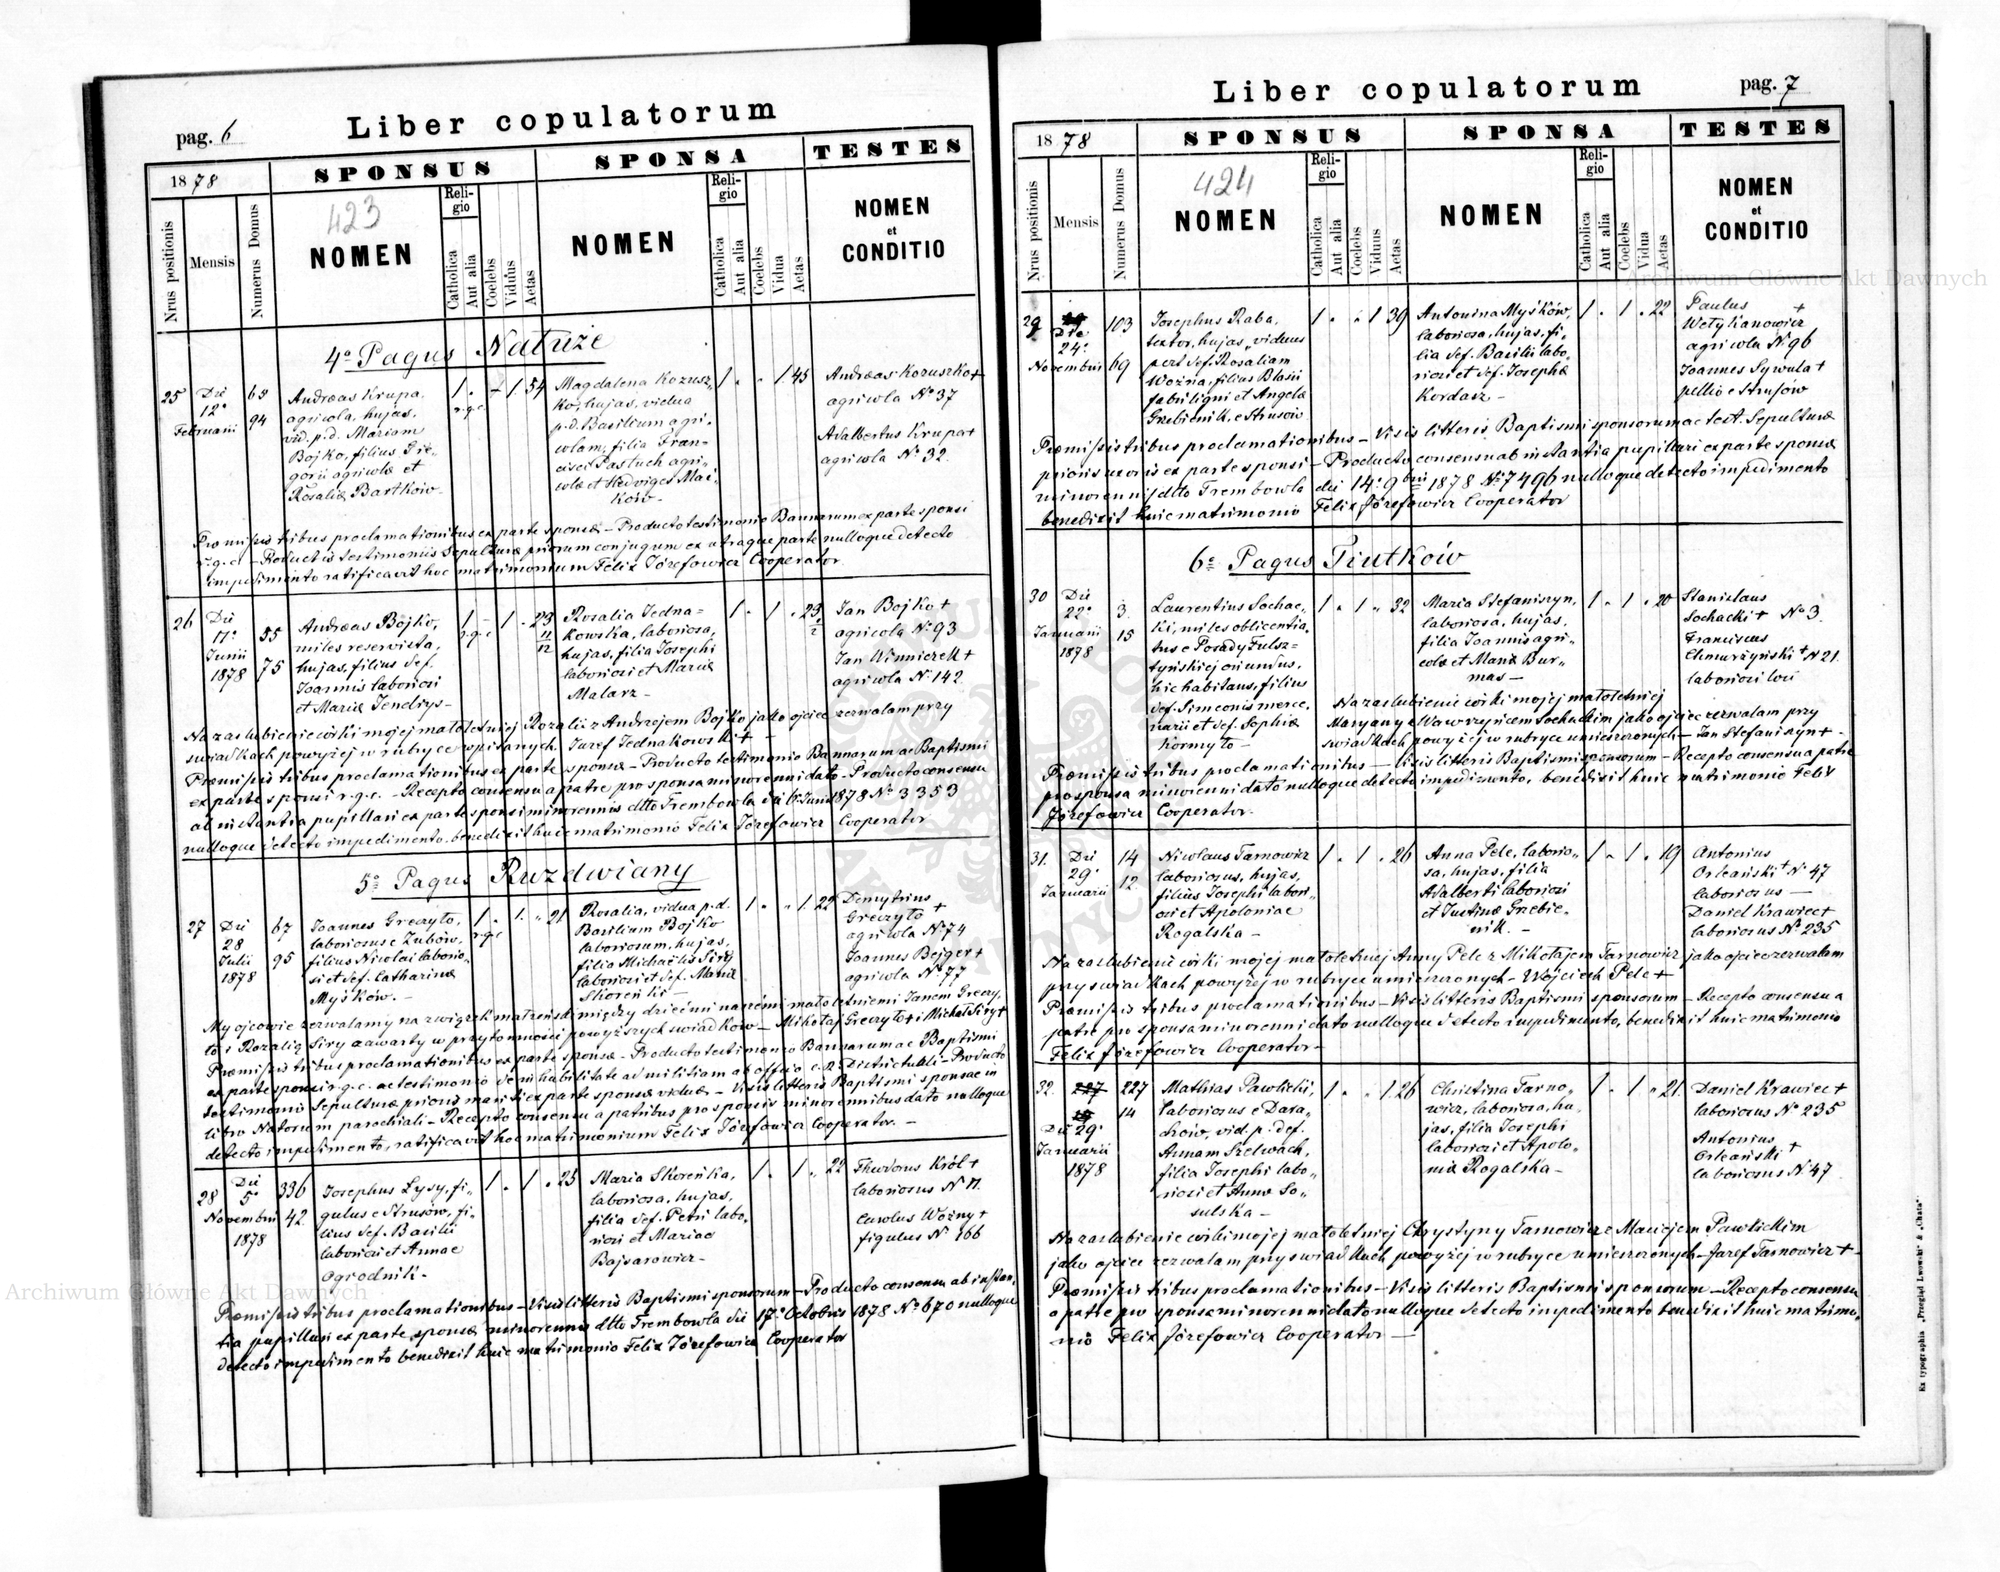 Liber copulatorum
pag. 6
1878
SPONSUS
SPONSA
TESTES
Nrus positionis
Mensis
Numerus Domus
423
NOMEN
Religio
Catholica
Aut alia
Coelebs
Viduus
Aetas
NOMEN
Religio
Catholica
Aut alia
Coelebs
Vidua
Aetas
NOMEN
et
CONDITIO
4º Pagus Nałuże
25
Die
12ª
Februarii
68
94
Andreas Krupa,
agricola, hujas,
vid. p. d. Mariam
Bojko, filius Gre„
gorii agricolæ et
Rosaliæ Bartków-
1 . - 1. 54
r.g.c.
Magdalena Kozusz„
ko, hujas, vidua
p. d. Basilium agri„
colam, filia Fran„
cisci Pastuch agri„
colæ et Hedviges Mać„
ków-
1 . . 1. 45
Andreas Kozuszko+
agricola Nº 37
Adalbertus Krupa+
agricola Nº 32.
Præmissis tribus proclamationibus ex parte sponsæ - Producto testimonio Bannarum ex parte sponsi
r.g.c. - Productis testimoniis Sepulturæ priorum conjugum ex utraque parte nulloque detecto
impedimento ratificavit hoc matrimonium Felix Józefowicz Cooperator.
26
Die
17ª
Junii
1878
55
75
Andreas Bojko,
miles reservista,
hujas, filius def.
Joannis laboriosi
et Mariæ Jendrys-
1 - 1 . 23
r.g.c.
11
12
Rosalia Jedna=
kowska, laboriosa,
hujas, filia Josephi
laboriosi et Mariæ
Malarz-
1 . 1 . 23
Jan Bojko+
agricola Nº 93
Jan Winniczek+
agricola Nº 142
Na zaslubienie córki mojej małoletniej Rozalii z Andrzejem Bojko jako ojciec zezwalam przy
swiadkach powyżej w rubryce wpisanych. Jozef Jednakowski +
Præmissis tribus proclamationibus ex parte sponsæ - Producto testimonio Bannarum ac Baptismi
ex parte sponsi r.g.c. - Recepto consensu a patre pro sponsa minorenni dato - Producto consensu
ab instantia pupillari ex parte sponsi minorennis dtto Trembowla die 6 Junii 1878 Nº 3353
nulloque detecto impedimento. benedixit huic matrimonio Felix Józefowicz Cooperator
5º Pagus Ruzdwiany
27
Die
28
Julii
1878
67
95
Joannes Greczyło,
laboriosus e Zubów,
filius Nicolai laborio„
si et def. Catharinæ
Myśków.-
1 . 1. „ 21
r.g.c.
Rosalia, vidua p. d.
Basilium Bojko
laboriosum, hujas,
filia Michaelis Siry
laboriosi et def. Mariæ
Skoreńki-
1 . „ 1. 22
Demytrius
Greczyło +
agricola Nº 74
Joannes Bejger+
agricola Nº 77
My ojcowie zezwalamy na związek małżeński między dziećmi naszémi małoletniemi Janem Greczy„
ło i Rozalią Siry zawarty w przytomności powyższych swiadków- Mikołaj Greczyło + i Michał Siry+
Præmissis tribus proclamationibus ex parte sponsæ - Producto testimonio Bannarum ac Baptismi
ex parte sponsi r.g.c. ac testimonio de inhabilitate ad militiam ab officio c.r. Districtuali - Producto
testimonio Sepulturæ prioris mariti ex parte sponsæ viduæ - Visis litteris Baptismi sponsae in
libro Natorum parochiali - Recepto consensu a patribus pro sponsis minorennibus dato nulloque
detecto impedimento, ratificavit hoc matrimonium Felix Józefowicz Cooperator. -
28
Die
5ª
Novembris
1878
336
42.
Josephus Lysy, fi„
gulus e Strusów, fi„
lius def. Basilii
laboriosi et Annae
Ogrodnik.-
1 . 1 . 25
Maria Skoreńka,
laboriosa, hujas,
filia def. Petri labo„
riosi et Mariae
Bojsarowicz-
1 . 1 „ 22
Theodorus Król+
laboriosus Nº 11.
Carolus Woźny+
figulus Nº 166
Præmissis tribus proclamationibus - Visis litteris Baptismi sponsorum - Producto consensu ab instan„
tia pupillari ex parte sponsæ minorennis dtto Trembowla die 17ª Octobris 1878 Nº 670 nulloque
detecto impedimento benedixit huic matrimonio Felix Józefowicz Cooperator
Liber copulatorum
pag. 7
1878
SPONSUS
SPONSA
TESTES
Nrus positionis
Mensis
Numerus Domus
424
NOMEN
Religio
Catholica
Aut alia
Coelebs
Viduus
Aetas
NOMEN
Religio
Catholica
Aut alia
Coelebs
Vidua
Aetas
NOMEN
et
CONDITIO
29
Die
24ª
Novembris
103
69
Josephus Raba,
textor, hujas, viduus
post def. Rosaliam
Woźna, filius Blasii
fabri ligni et Angelæ
Grzebienik, e Strusów
1 . . 1 39
Antonina Myśków,
laboriosa, hujas, fi„
lia def. Basilii labo„
riosi et def. Josephæ
Kordasz-
1 . 1 . 22
Paulus +
Wetykanowicz
agricola Nº 96
Joannes Sywula+
pellio e Strusów
Præmissis tribus proclamationibus - Visis litteris Baptismi sponsorum ac test. Sepulturæ
prioris uxoris ex parte sponsi - Producto consensu ab instantia pupillari ex parte sponsæ
minorennis dtto Trembowla die 14ª 9bris 1878 Nº 7496 nulloque detecto impedimento
benedixit huic matrimonio Felix Józefowicz Cooperator
6º Pagus Tiutków
30
Die
22ª
Januarii
1878
3.
15
Laurentius Sochac„
ki, miles oblicentia„
tus e Posady Fulsz„
tyńskiej oriundus,
hic habitans, filius
def. Simeonis merce„
narii et def. Sophiæ
Kormyło-
1 . 1 „ 32
Maria Stefaniszyn,
laboriosa, hujas,
filia Joannis agri„
colæ et Mariæ Bur„
mas-
1 . 1 . 20
Stanislaus
Sochacki+ Nº 3.
Franciscus
Chmurzyński + N 21.
laboriosi loci
Na zaslubienie córki mojej małoletniej
Maryany z Wawrzyńcem Sochackim jako ojciec zezwalam przy
swiadkach powyżej w rubryce umieszczonych - Jan Stefaniszyn+ -
Præmissis tribus proclamationibus - Visis litteris Baptismi sponsorum - Recepto consensu a patre
pro sponsa minorenni dato nulloque detecto impedimento, benedixit huic matrimonio Felix
Józefowicz Cooperator.
31.
Die
29ª
Januarii
14
12.
Nicolaus Tarnowicz
laboriosus, hujas,
filius Josephi labori„
osi et Apoloniae
Rogalska-
1 . 1 . 26
Anna Pele, laborio„
sa, hujas, filia
Adalberti laboriosi
et Justinæ Grzebie„
nik.-
1 . 1 . 19
Antonius
Orleański + Nº 47
laboriosus -
Daniel Krawiec+
laboriosus Nº 235
Na zaslubienie córki mojej małoletniej Anny Pele z Mikołajem Tarnowicz jako ojciec zezwalam
przy swiadkach powyżej w rubryce umieszczonych - Wojciech Pele +
Præmissis tribus proclamationibus - Visis litteris Baptismi sponsorum - Recepto consensu a
patre pro sponsa minorenni dato nulloque detecto impedimento, benedixit huic matrimonio
Felix Józefowicz Cooperator-
32.
227
Die 29ª
Januarii
1878
227
14
Mathias Pawlicki,
laboriosus e Dara„
chów, vid. p. def.
Annam Szelwach,
filia Josephi labo„
riosi et Annæ So„
sulska-
1 . . 1. 26
Christina Tarno„
wicz, laboriosa, hu„
jas, filia Josephi
laboriosi et Apolo„
niæ Rogalska-
1 . 1 „ 21.
Daniel Krawiec+
laboriosus Nº 235
Antonius
Orleański +
laboriosus N. 47
Na zaslubienie córki mojej małoletniej Chrystyny Tarnowicz z Maciejem Pawlickim
jako ojciec zezwalam przy swiadkach powyżej w rubryce umieszczonych - Jozef Tarnowicz+ -
Præmissis tribus proclamationibus - Visis litteris Baptismi sponsorum - Recepto consensu
a patre pro sponsa minorenni dato nulloque detecto impedimento benedixit huic matrimo„
nio Felix Józefowicz Cooperator-
Ex typographia „Przegląd Lwowski" & „Chata".
Archiwum Główne Akt Dawnych
Archiwum Główne Akt Dawnych